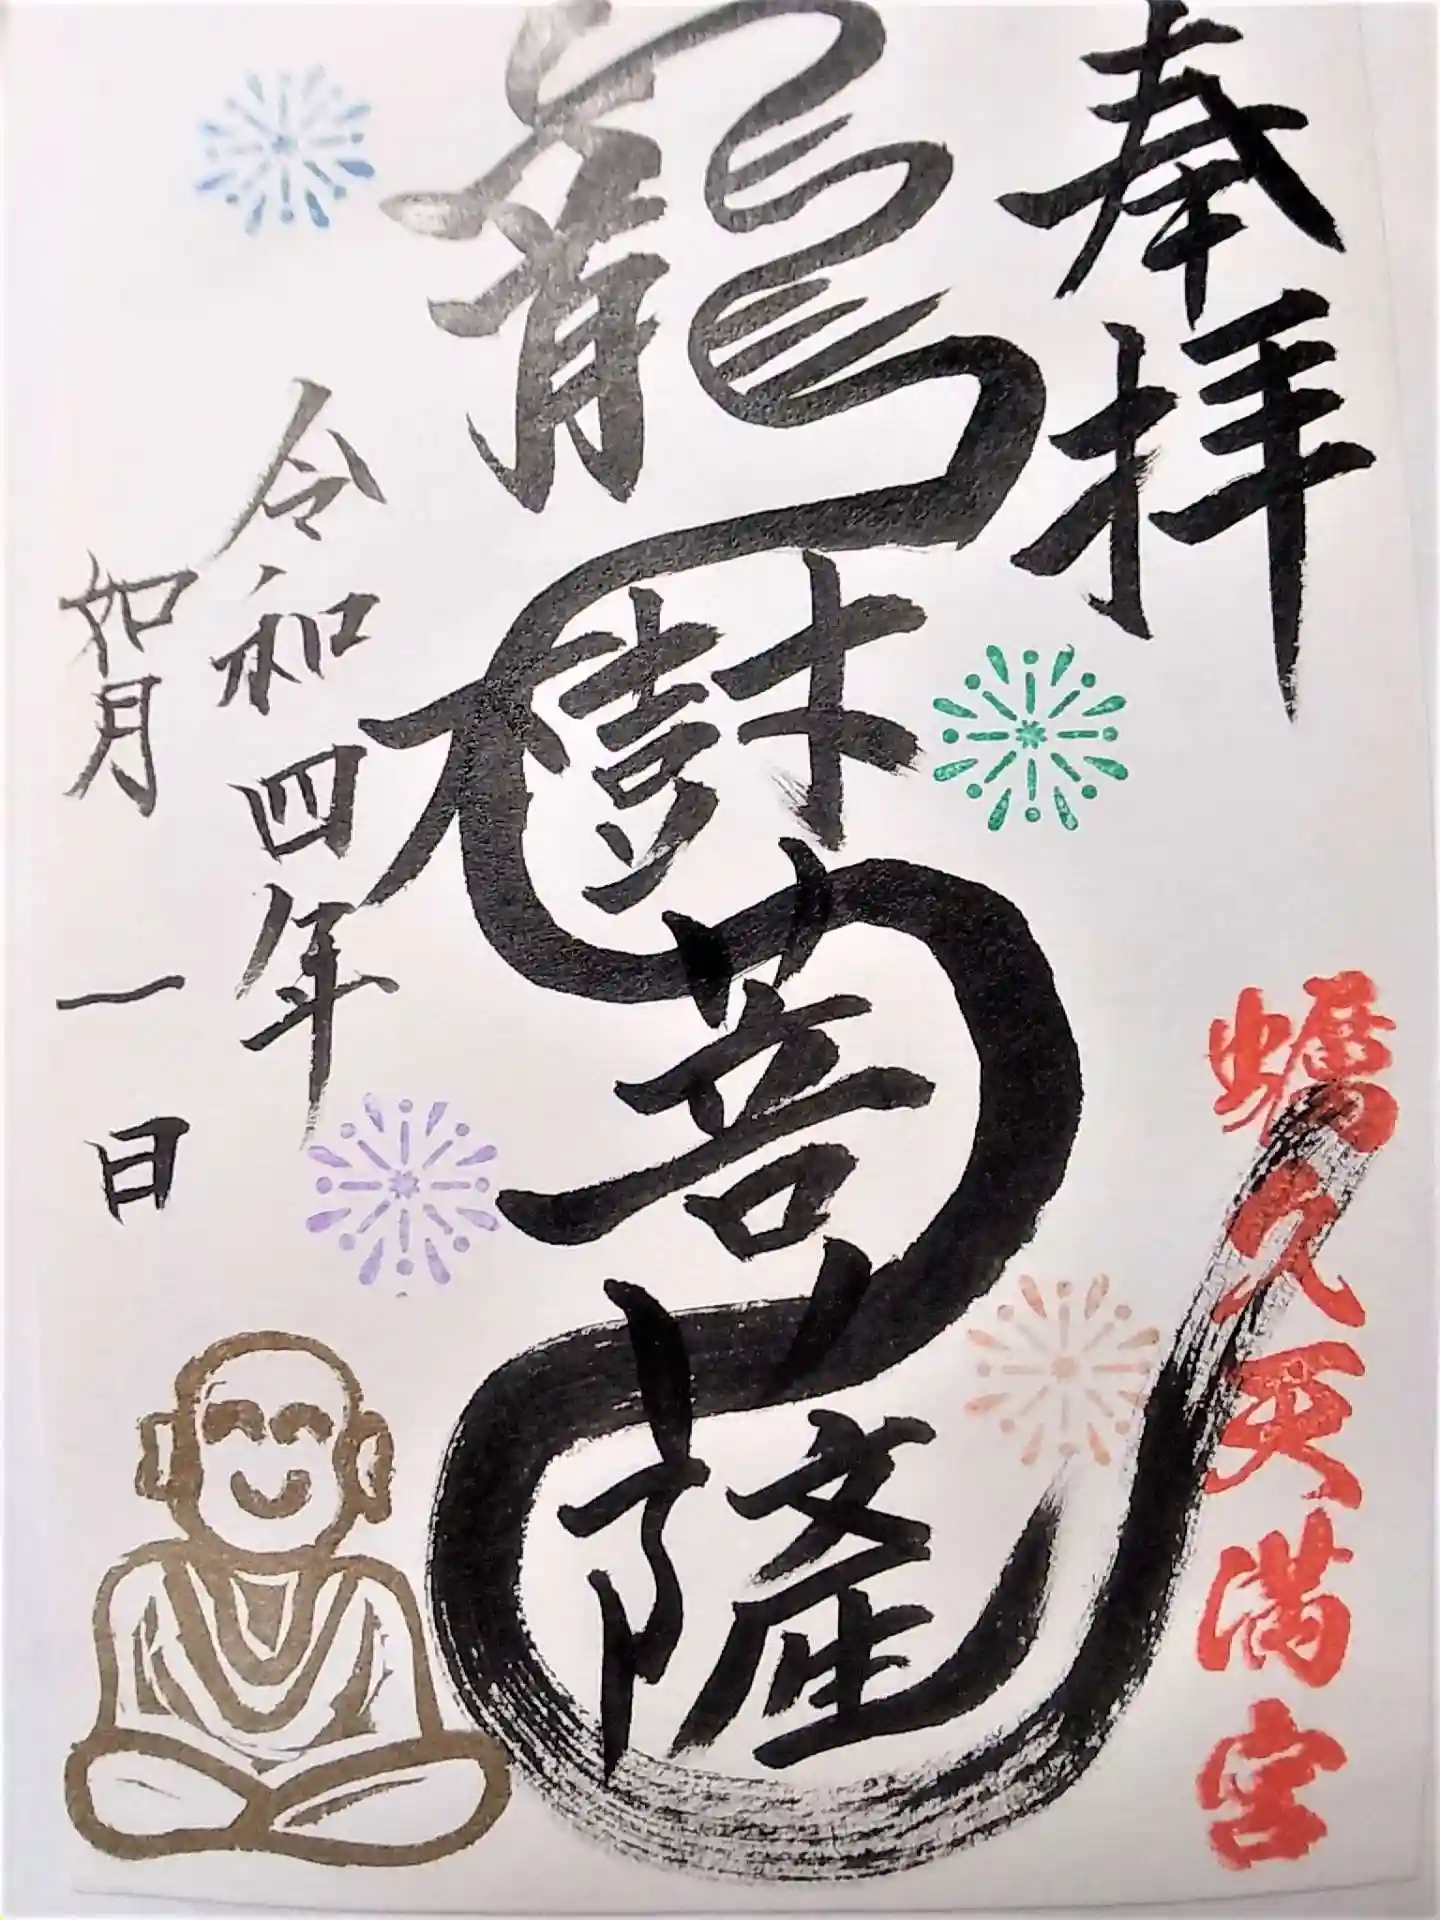 奉拝
蠣久天満宮
龍樹菩薩
令和四年
如月一日